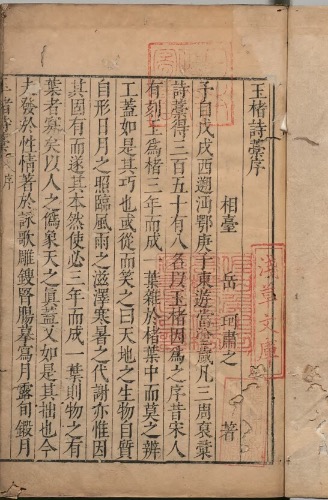 玉楮詩藁序
相臺 岳 珂肅之 著
予自戊戌西遡沔鄂庚子東遊當塗歲凡三周裒彙
詩藁得三百五十有八名以玉楮因爲之序昔宋人
有刻玉爲楮三年而成一葉雜於楮葉中而莫之辨
工蓋如是其巧也或從而笑之曰天地之生物自質
自形日月之照臨風雨之滋澤寒暑之代謝亦惟因
其固有而遂其本然使必三年而成一葉則物之有
葉者寡矣以人之僞象天之眞又如是其拙也今
夫發於性情著於詠歌雕鎪腎腸摹寫月露旬鍛月
淺草文庫